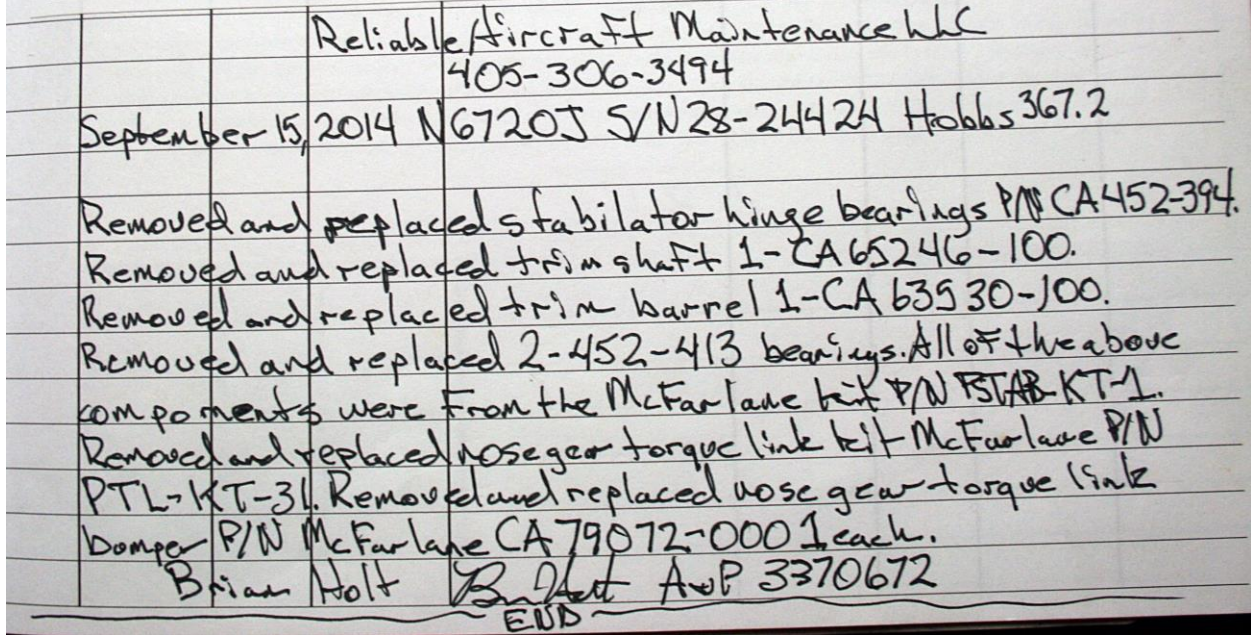 Reliable Aircraft Maintenance LLC
405-306-3494
September 15, 2014 N6720J S/N 28-24424 Hobbs 367.2
Removed and replaced stabilator hinge bearings P/N CA452-394.
Removed and replaced trim shaft 1-CA65246-100.
Removed and replaced trim barrel 1-CA63930-100.
Removed and replaced 2-452-413 bearings. All of the above
components were from the McFarlane kit P/N PSTAB-KT-1.
Removed and replaced nose gear torque link kit McFarlane P/N
PTL-KT-31. Removed and replaced nose gear torque link
bomper P/N McFarlane CA79072-000 1 each.
Brian Holt Brian Holt A&P 3370672
END